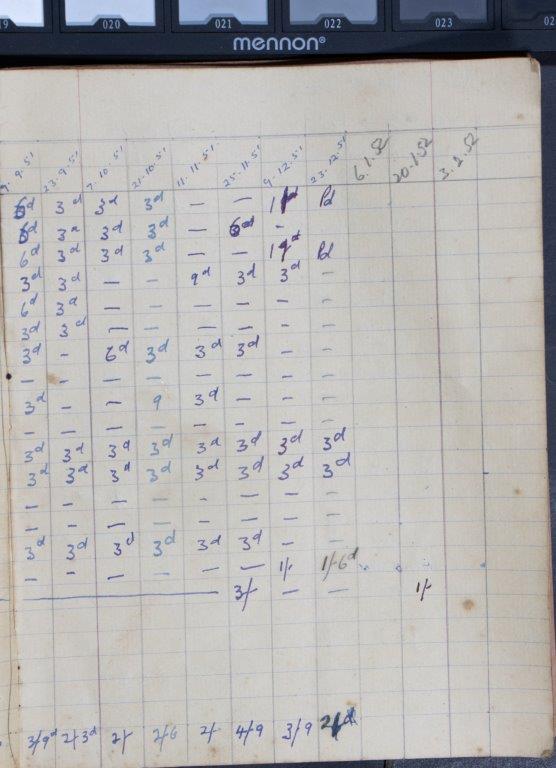 19 020 021 022 023 02
mennon®
9.51 23.9.51 7.10.51 21.10.51 11.11.51 25.11.51 9.12.51 23.12.51 6.1.52 20.1.52 3.2.52
6d 3d 3d 3d — — Pd
3d 3d 3d — 6d -
6d 3d 3d 3d — — Pd
3d 3d — — 9d 3d 3d -
6d 3d — — — — — -
3d 3d — — — — - -
3d - 6d 3d 3d 3d - -
— — — — — — - -
3d - — 9 3d — - -
— — — — — — - -
3d 3d 3d 3d 3d 3d 3d 3d
3d 3d 3d 3d 3d 3d 3d 3d
— — — — - — — -
— — — — - — — -
3d 3d 3d 3d 3d 3d - -
— — — — — — 1/- 1/6d
3/- — — 1/-
3/9d 2/3d 2/- 2/6 2/- 4/9 3/9